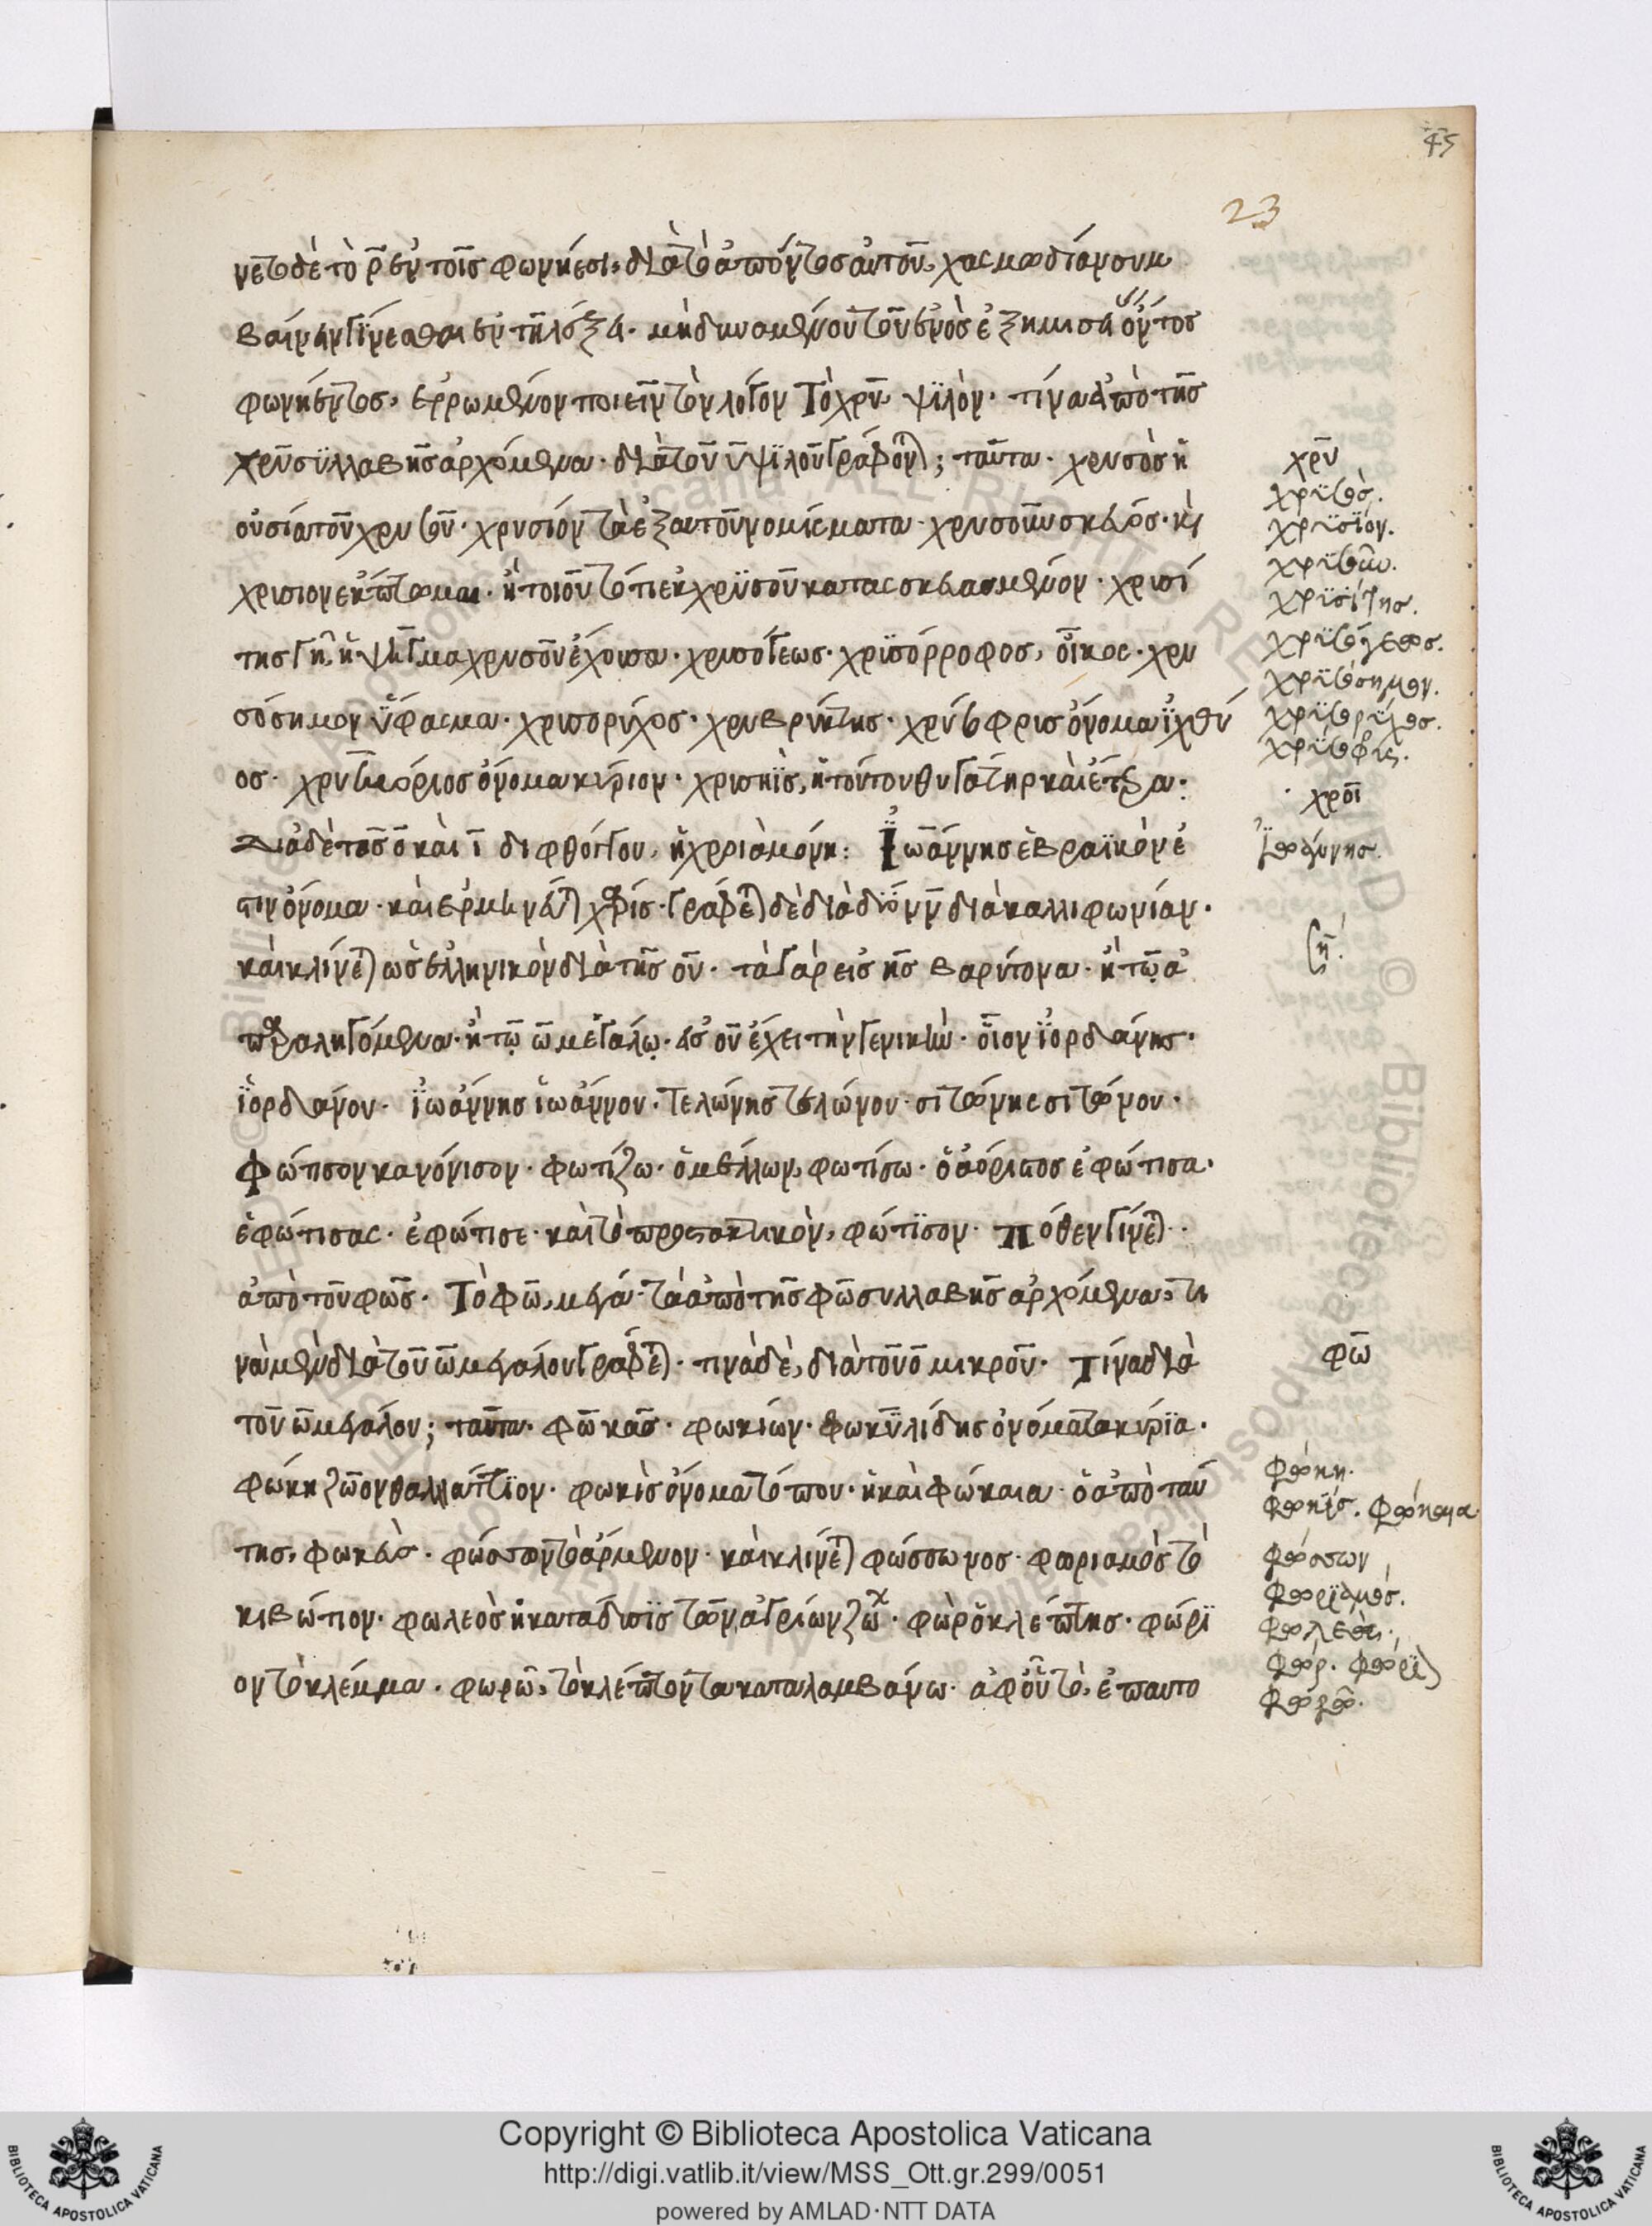 45
23
νετο δὲ τὸ ρ̄ ἐν τοῖς φωνήεσι, διὰ τὸ ἀπόντος αὐτοῦ, χασμωδίαν συμ
βαίνειν γίνεσθαι ἐν τῇ λέξει. μὴ δυναμένου τοῦ ἑνὸς ἐξ ἡμισείου ὄντος
φωνήεντος, ἐρρωμένον ποιεῖν τὸν λόγον Τὸ χρῡ ψϊλόν. τίνα ἀπὸ τῆς
χρῡ συλλαβῆς ἀρχόμενα. διὰ τοῦ ῡ ψϊλοῦ γράφονται; ταῦτα. χρυσὸς ἡ
οὐσία τοῦ χρυσοῦ. χρυσίον τὰ ἐξ αυτοῦ νομίσματα. χρυσοῦν σκεῦος. καὶ
χρισιον ἐκπωμα. ἤτοι οὕτό τι ἐκ χρϋσοῦ κατασκευασμένον. χρισί
της γῆ, ἢ ψῆγμα χρυσοῦ ἔχουσα. χρισόγεως. χρϊσόρροφος, οἶκος. χρυ
σόσημον ὕφασμα. χρισορύχος. χρυσωρύκτης. χρύσοφρις ὄνομα ἰχθύ
ος. χρύσης κύριος ὄνομα κύριον. χρισηῒς, ἡ τούτου θυγάτηρ καὶ ἕτερα.
Διὰ δὲ τῆς ο̄ καὶ ῑ διφθόγγου, ἡ χροιὰ μόνη: Ἰωάννης ἑβραϊκόν ἐ
στιν ὄνομα. καὶ ἑρμηνεύεται χάρις. γράφεται δὲ διὰ δύο νν διὰ καλλιφωνίαν.
καὶ κλίνεται ὡς ἑλληνικὸν διὰ τῆς ου. τὰ γὰρ εἰς ης βαρύτονα. ἢ τῷ ᾱ
παραληγόμενα. ἢ τῷ ω̄ μεγάλῳ. εἰς ου ἔχει τὴν γενικὴν. οἷον ἰορδάνης.
ἰορδάνου. ἰωάννης ἰωάννου. τελώνης τελώνου. σιτώνης σιτώνου.
Φώτισον κανόνισον. φωτίζω. ὁ μέλλων, φωτίσω. ὁ ἀόριστος ἐφώτισα.
ἐφώτισας. ἐφώτισε. καὶ τὸ προστακτικὸν, φώτϊσον. πόθεν γίνεται.
ἀπὸ τοῦ φῶς. Τὸ φω̄, μέγα. τὰ ἀπὸ τῆς φω̄ συλλαβῆς ἀρχόμενα, τι
νὰ μὲν διὰ τοῦ ω̄ μεγάλου γράφεται. τινὰ δὲ, διὰ τοῦ ο̄ μικροῦ. Τίνα διὰ
τοῦ ω̄ μεγάλου; ταῦτα. φωκᾶς. φωκίων. φωκυλίδης ὀνόματα κύρϊα.
φώκη ζῶον θαλλάττϊον. φωκὶς ὄνομα τόπου. ἢ καὶ φώκαια. ὁ ἀπὸ ταύ
της, φωκεύς. φώσσων τὸ ἄρμενον. καὶ κλίνεται φώσσωνος. φωριαμὸς τὸ
κιβώτιον. φωλεὸς ἡ κατάδυσϊς τῶν ἀγρίων ζώων. φὼρ ὁ κλέπτης. φώρϊ
ον τὸ κλέμμα. φωρῶ, τὸ κλέπτοντα καταλαμβάνω. ἀφ οὗ τὸ, ἐπ αυτο
χρῡ
χρϊσὸς.
χρϊσϊόν.
χρϊσοῦν.
χρϊσίτης.
χρϊσόγεως.
χρϊσόσημον.
χρϊσορϊχος.
χρϊσοφρϊς.
χροῑ
Ἰωάννης.
φω̄
Φώκη.
Φωκϊς. Φώκαια
Φώσσων
Φωρϊαμός.
Φωλεὸς.
Φώρ. Φώρϊον
Φωρῶ.
Copyright © Biblioteca Apostolica Vaticana
http://digi.vatlib.it/view/MSS_Ott.gr.299/0051
powered by AMLAD·NTT DATA